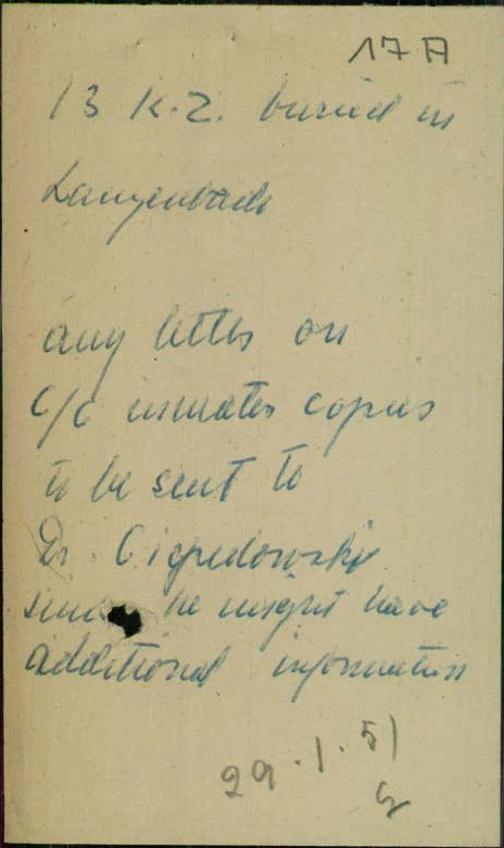 17 A
13 K.Z. buried in
Langenbach
any letter on
C/C inmates copies
to be sent to
Dr.
since he might have
additional information
29.1.51